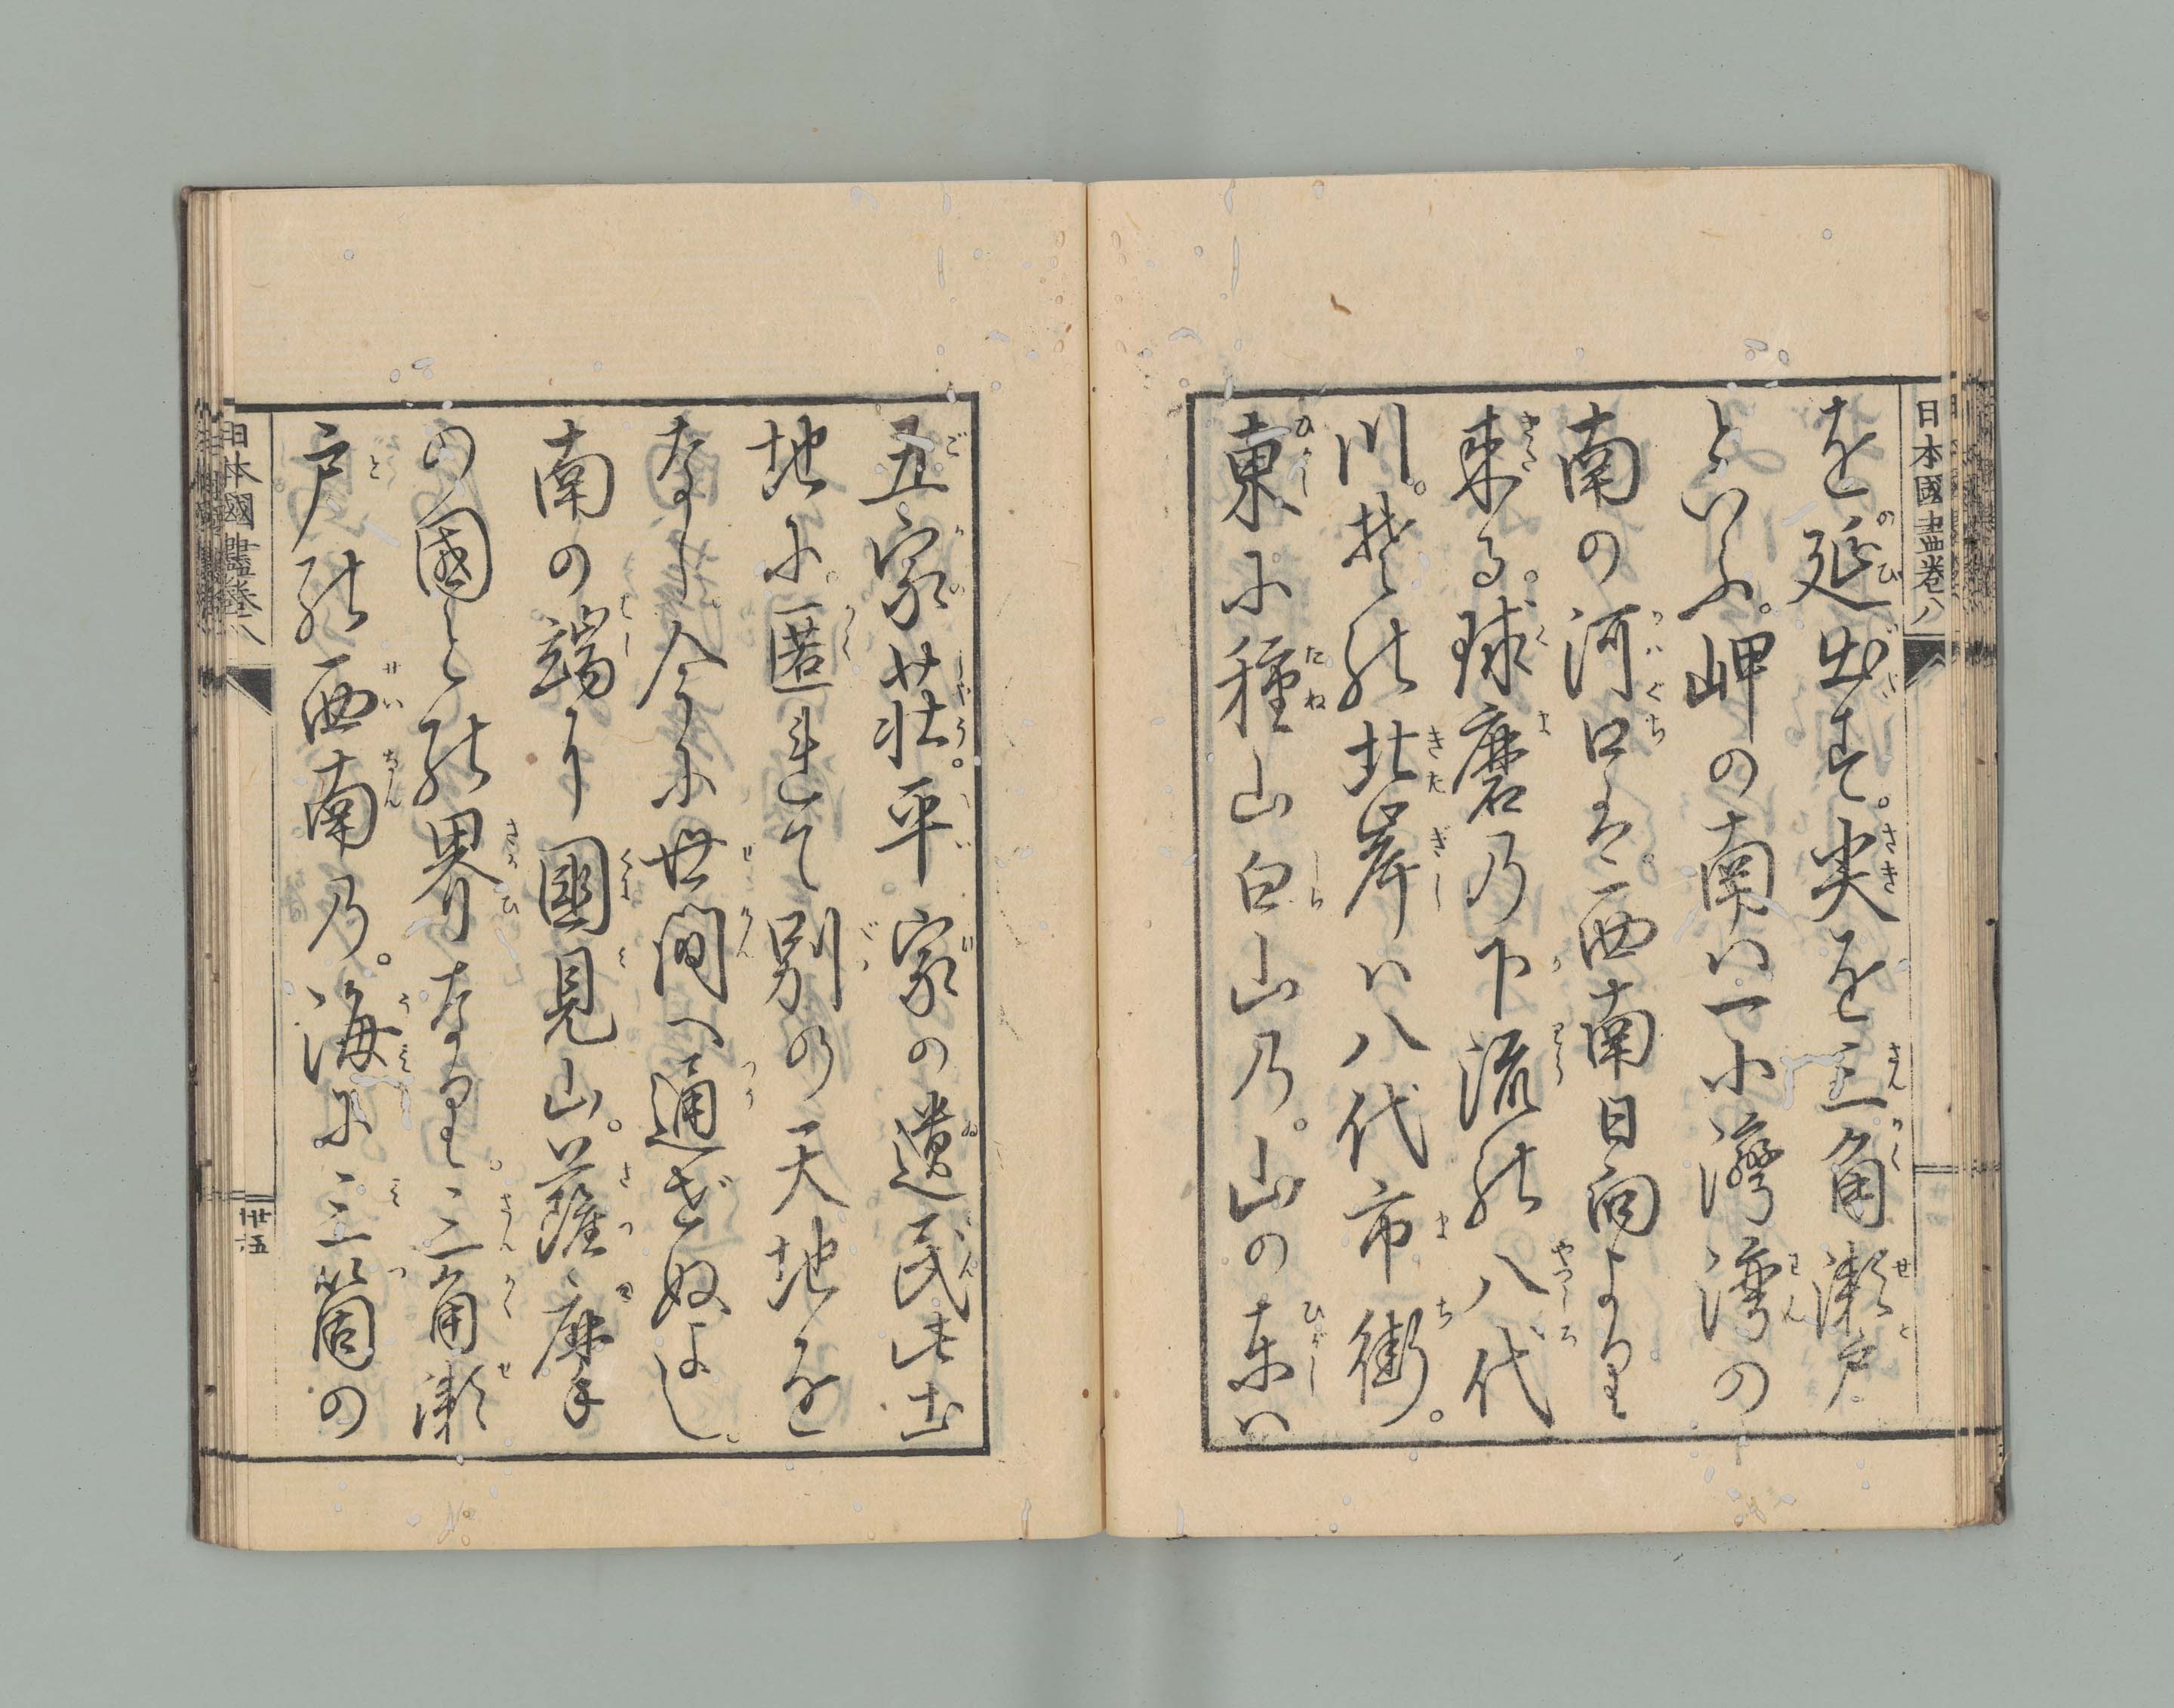 日本國盡卷八
を延出す。尖を三角瀬戸
といふ。岬の南ハ一小灣灣の
南の河口は西南日向より
来る。球磨乃下流能八代
川。其能北岸ハ八代市街。
東に種山白山乃。山の東ハ
五家荘。平家の遺民此土
地に。匿れて別の天地を
なし今に世間へ通ぜぬよし。
南の端ハ國見山。薩摩
の國と能界なり。三角瀬
戸能西南乃。海に三箇の
日本國盡卷八
廿五